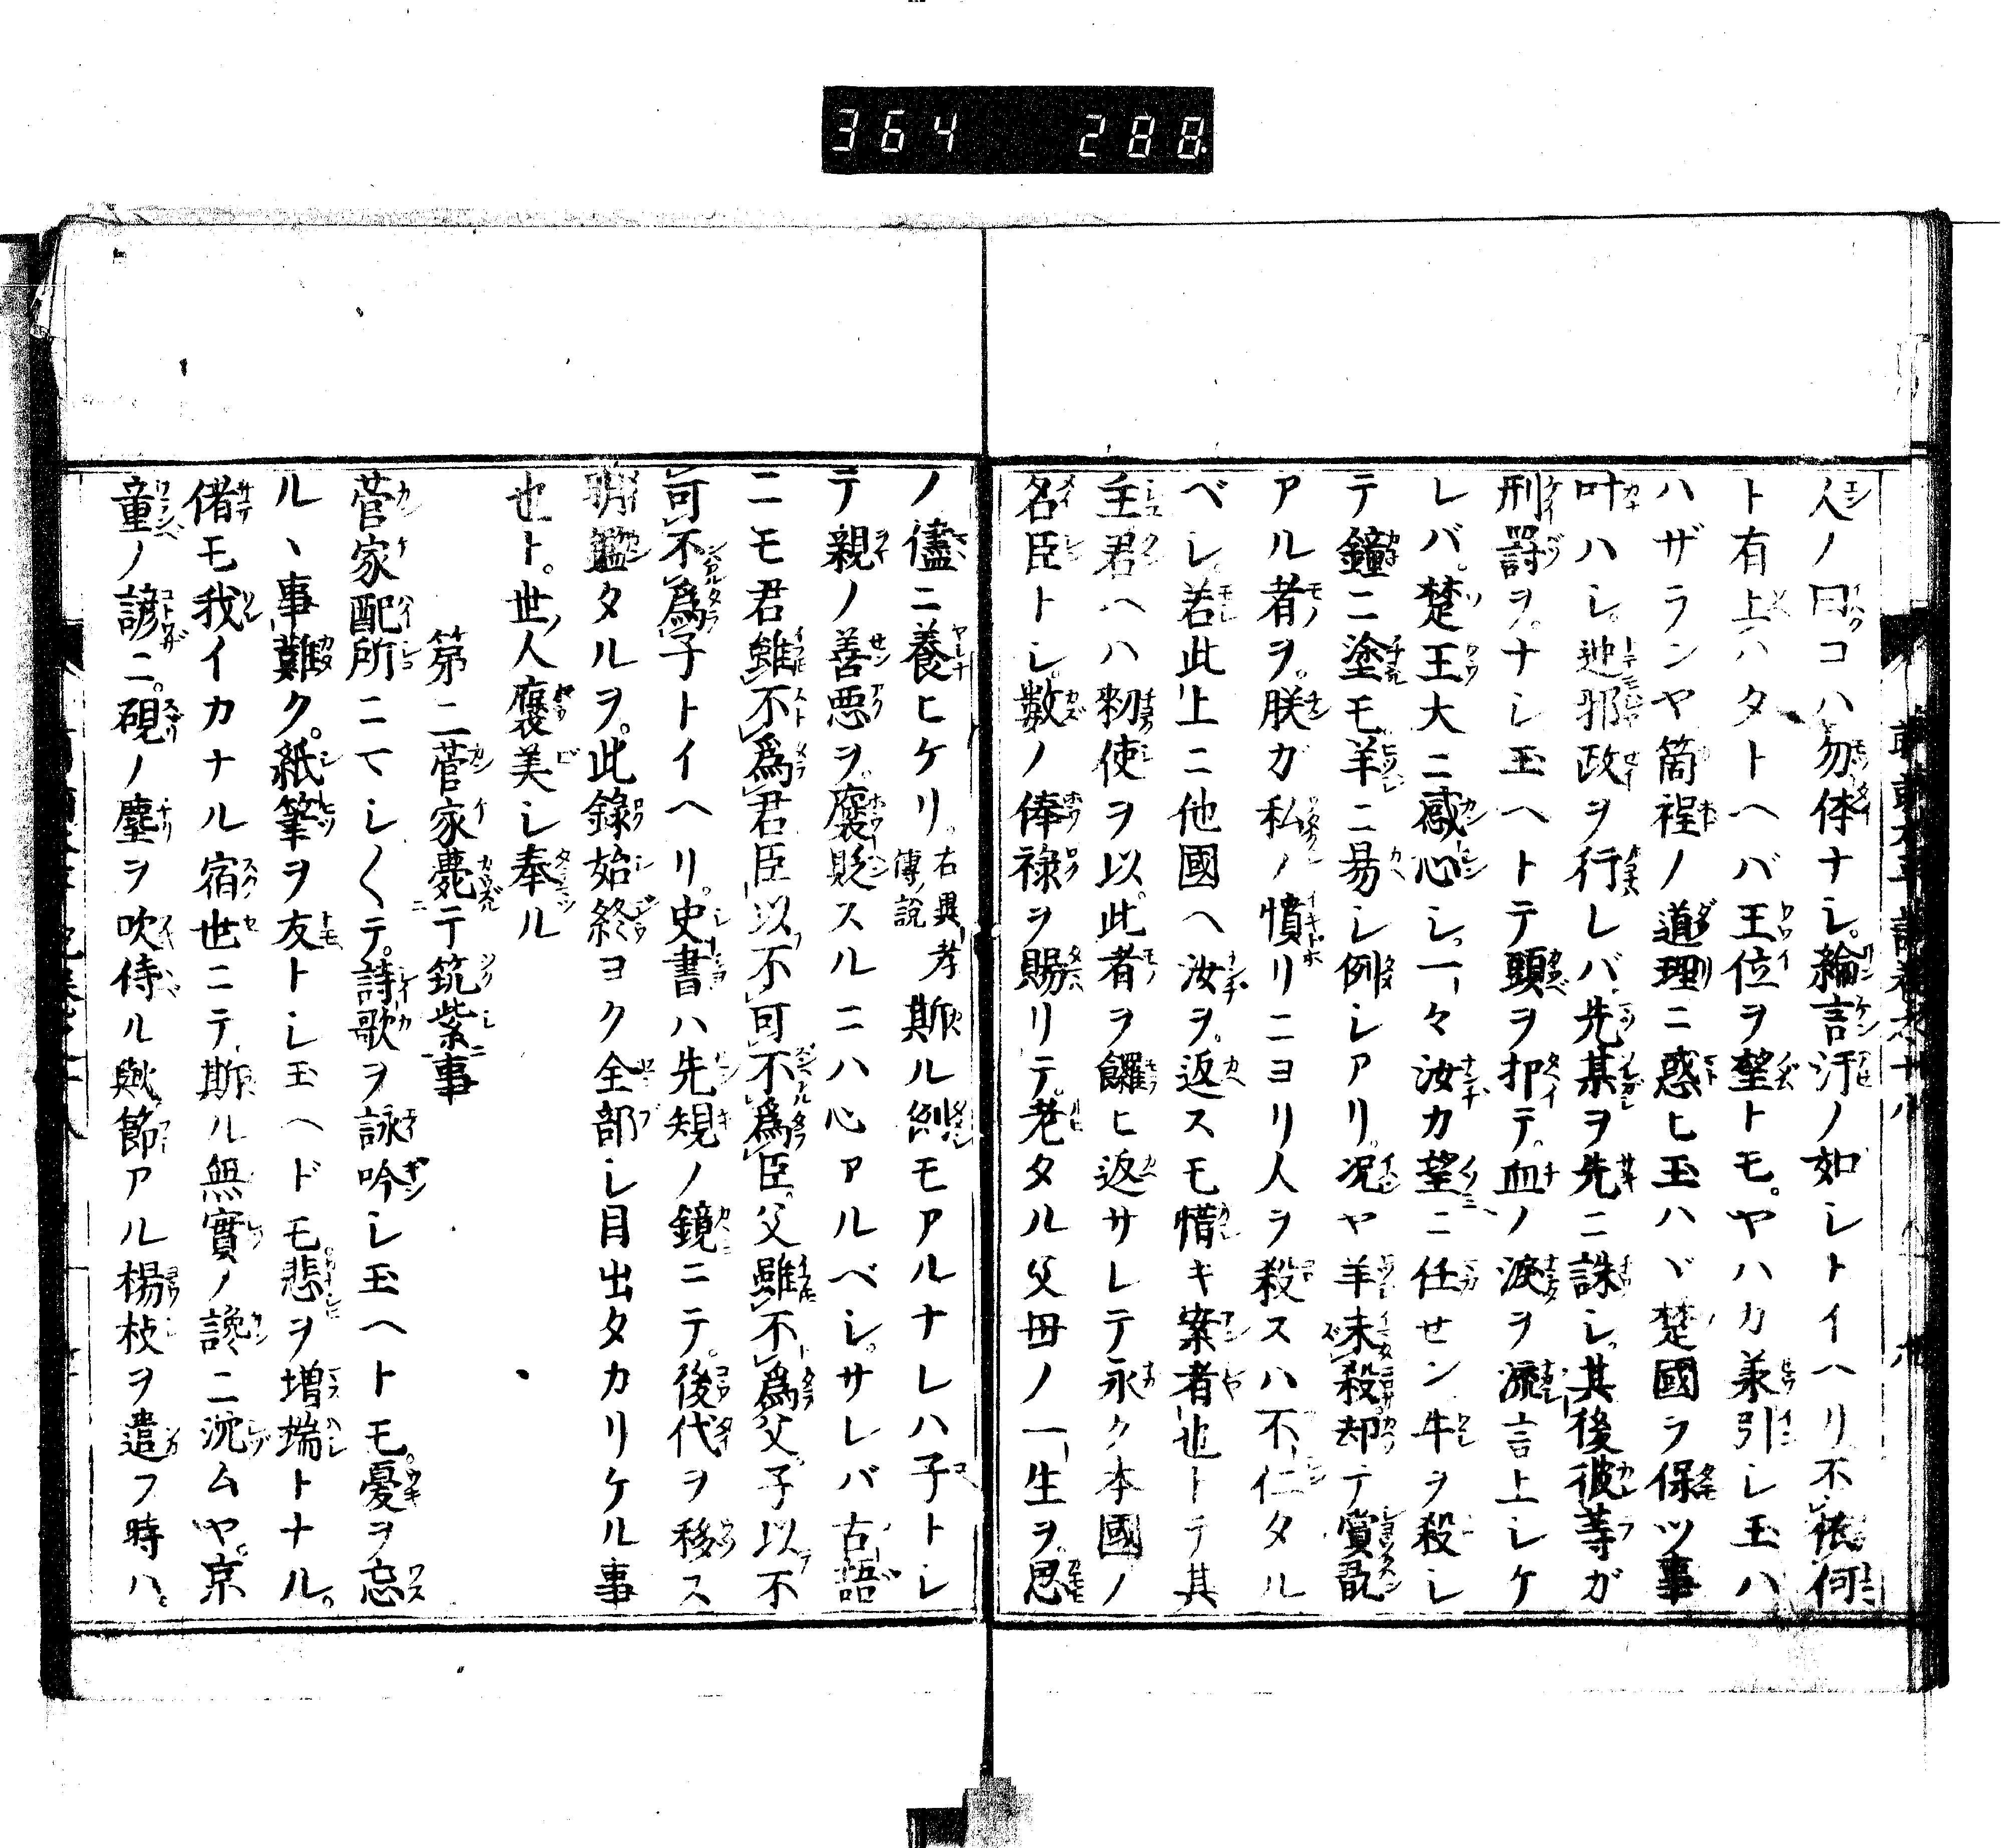 364 288
人ノ曰コハ勿体ナシ。綸言汗ノ如シトイヘリ不依何
ト有上ハタトヘバ王位ヲ望トモ。ヤハカ羕引シ玉ハ
ハザランヤ箇程ノ道理ニ惑ヒ玉ハヾ楚國ヲ保ツ事
叶ハシ。迚邪政ヲ行レバ先某ヲ先ニ誅シ。其後彼等ガ
刑罸ヲ。ナシ玉ヘトテ頭ヲ抑テ。血ノ淚ヲ流言上シケ
レバ。楚王大ニ感心シ。一々汝カ望ニ任せン牛ヲ殺シ
テ鐘ニ塗モ。羊ニ易シ例シアリ。况ヤ羊未殺却テ賞翫
アル者ヲ。朕ガ私ノ憤リニヨリ人ヲ殺スハ不仁タル
ベシ。若此上ニ他國ヘ汝ヲ。返スモ惜キ案者也トテ其
主君ヘハ勅使ヲ以。此者ヲ饠ヒ返サレテ永ク本國ノ
名臣トシ。数ノ俸祿ヲ賜リテ。老タル父母ノ一生ヲ。思
ノ儘ニ養ヒケリ。右異傳ノ說孝斯ル例モアルナレハ子トシ
テ親ノ善悪ヲ。褒貶スルニハ心アルベシ。サレバ古語
ニモ君雖不爲君臣以不可不爲臣。父雖不爲父。子以不
可不爲子トイヘリ。史書ハ先規ノ鏡ニテ。後代ヲ移ス
明鑑タルヲ。此錄始終ヨク全部シ目出タカリケル事
也ト。世ノ人褒美シ奉ル
第二菅家薨于筑紫事
菅家配所ニマシ〱テ。詩歌ヲ詠吟シ玉ヘトモ。憂ヲ忘
ルヽ事難ク。紙筆ヲ友トシ玉ヘドモ。悲ヲ増端トナル。
偖モ我イカナル宿世ニテ。斯ル無實ノ讒ニ沉ムヤ。京
童ノ諺ニ。硯ノ塵ヲ吹侍ル歟。節アル楊枝ヲ遣フ時ハ。